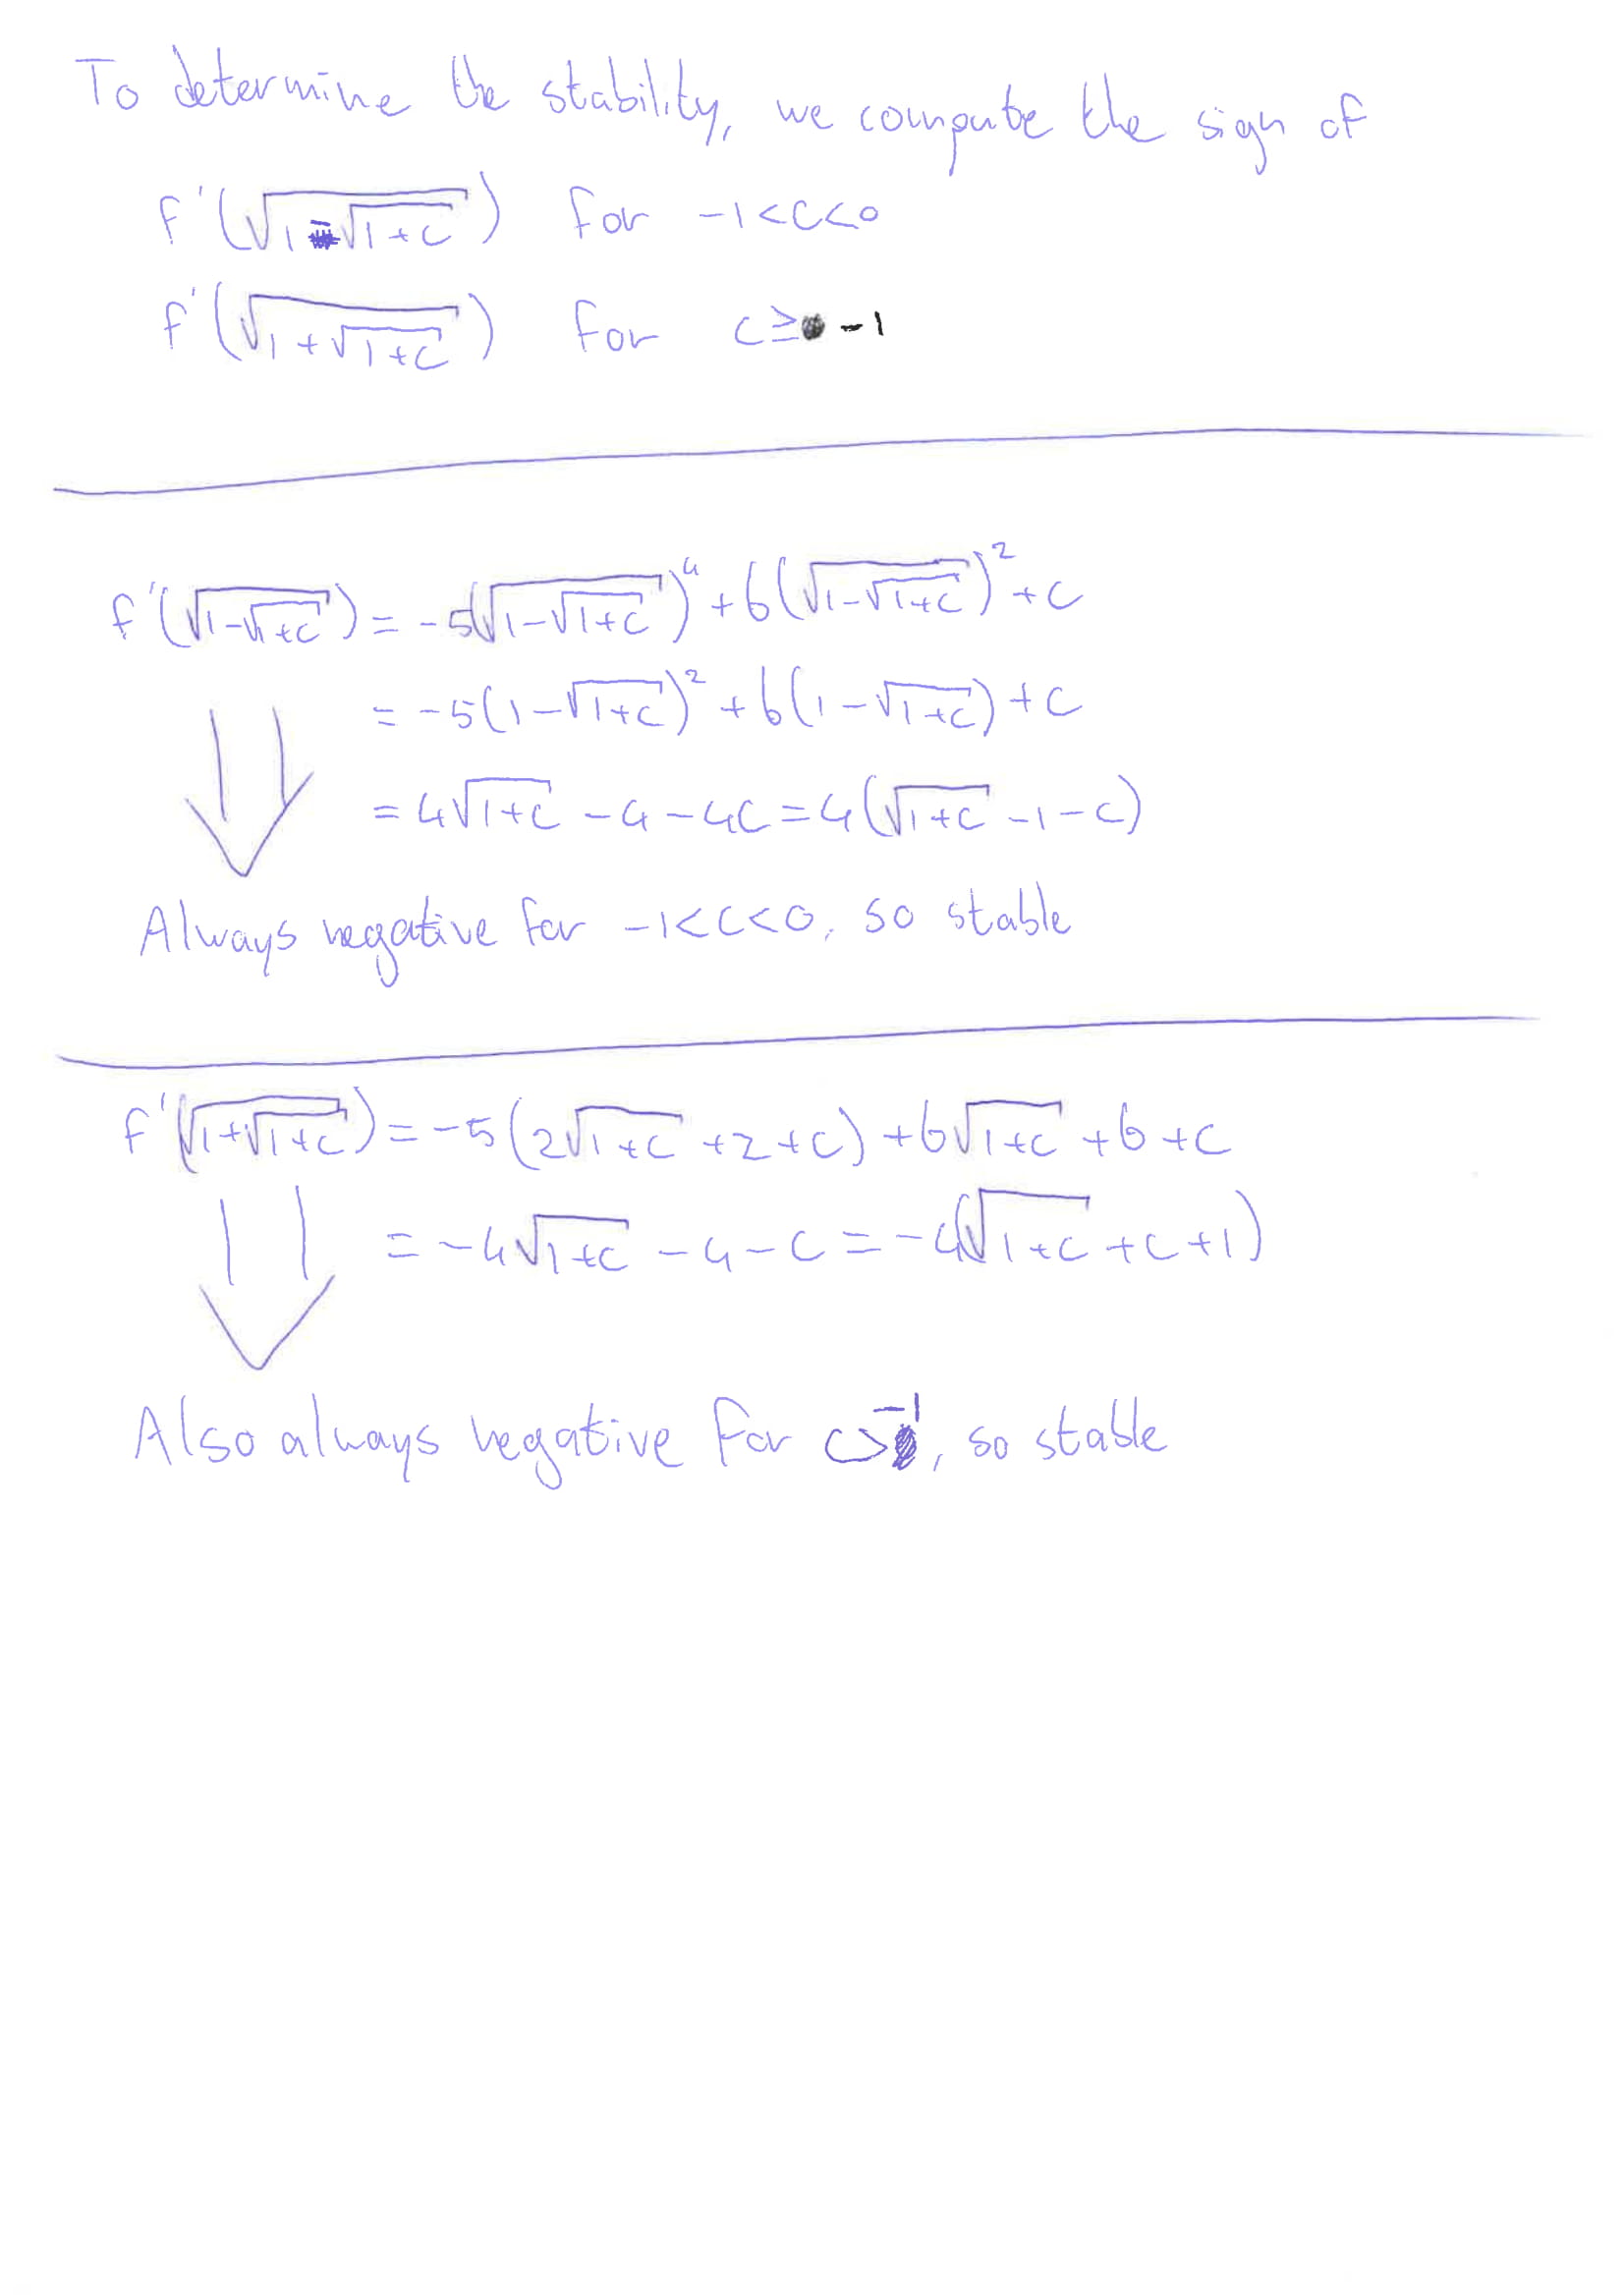 To determine the stability, we compute the sign of
f'(√(1-√(1+c))) for -1<c<0
f'(√(1+√(1+c))) for c≥-1
f'(√(1-√(1+c))) = -5(√(1-√(1+c)))⁴ + 6(√(1-√(1+c)))² + c
= -5(1-√(1+c))² + 6(1-√(1+c)) + c
= 4√(1+c) - 4 - 4c = 4(√(1+c) - 1 - c)
Always negative for -1<c<0, so stable
f'(√(1+√(1+c))) = -5(2√(1+c) + 2 + c) + 6√(1+c) + 6 + c
= -4√(1+c) - 4 - c = -4(√(1+c) + c + 1)
Also always negative for c>-1, so stable